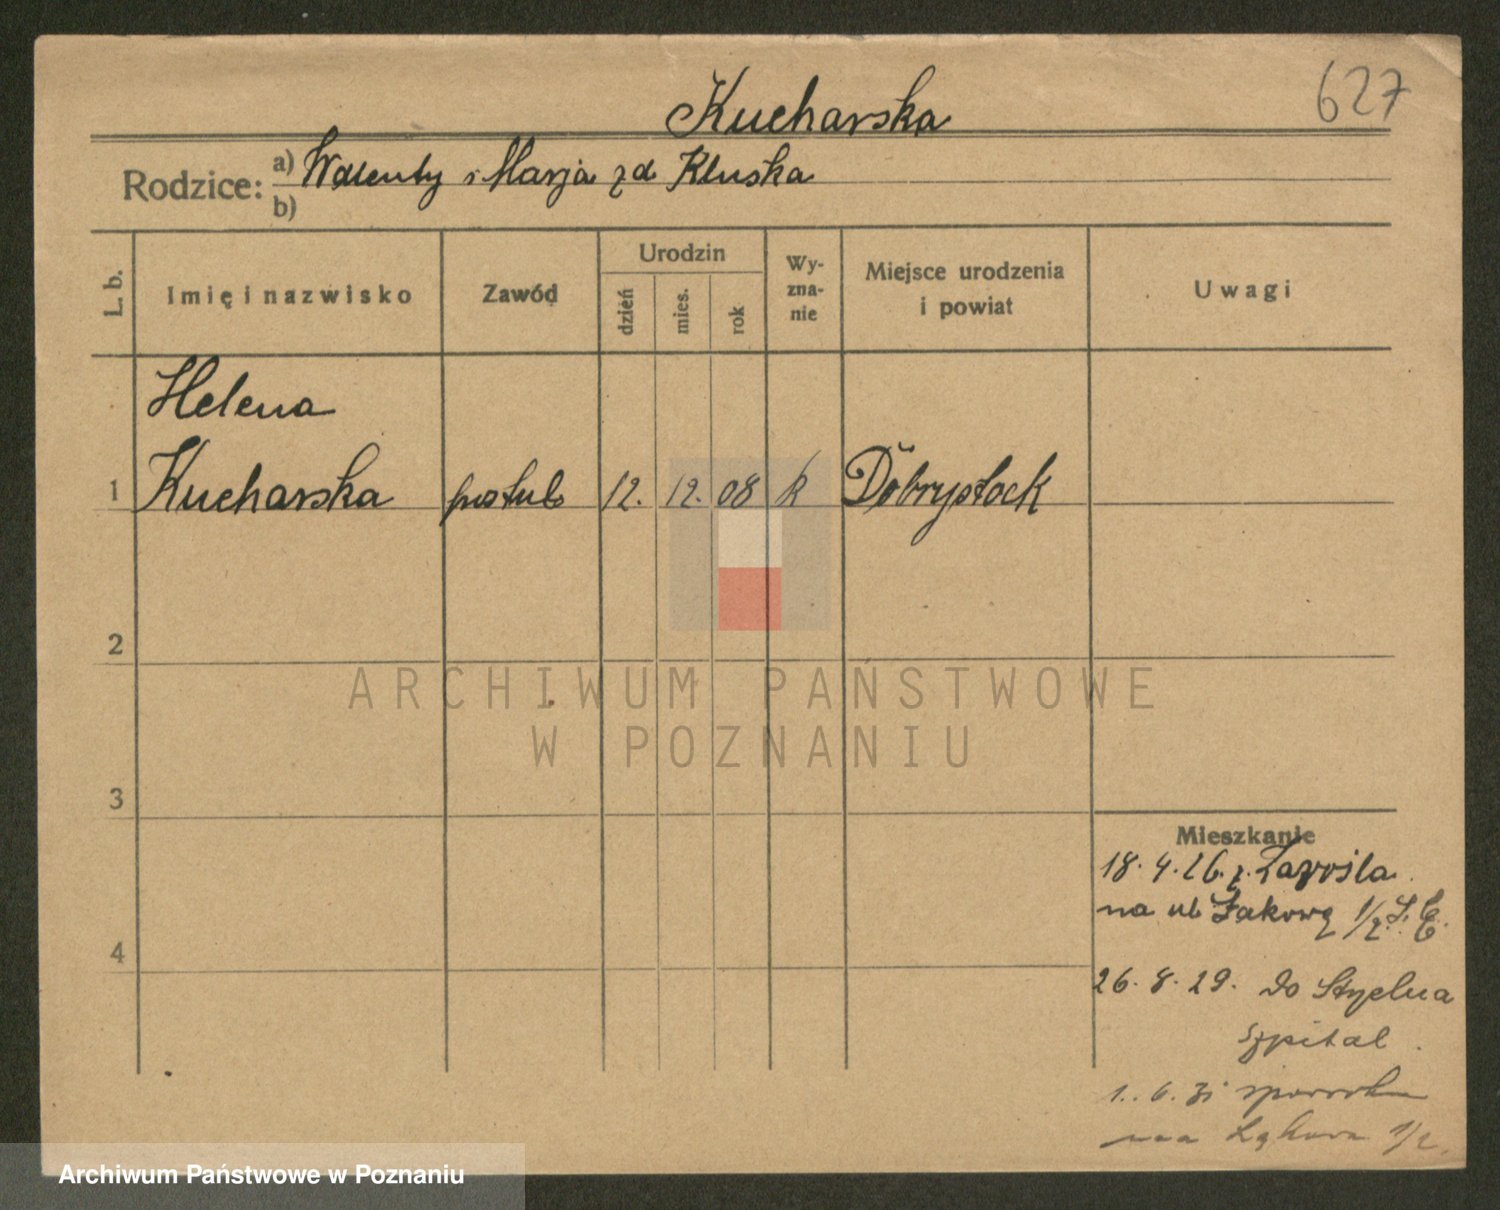 627
Kucharska
Rodzice: a) Walenty i Marja z d. Kluska
b)
L. b.
Imię i nazwisko
Zawód
Urodzin
dzień
mies.
rok
Wy-
zna-
nie
Miejsce urodzenia
i powiat
Uwagi
Helena
1 Kucharska postul 12. 12. 08 k
2
3
4
ARCHIWUM PAŃSTWOWE
W POZNANIU
Mieszkanie
18.4.26. z
na ul 1/2
26.8.29. do
szpital
1.6.31
Łąkowa 1/2
Archiwum Państwowe w Poznaniu